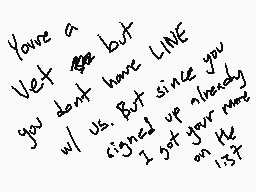 You're a
Vet but
you dont have LINE
w/ us. But since you
signed up already
I got your move
on the
1.37